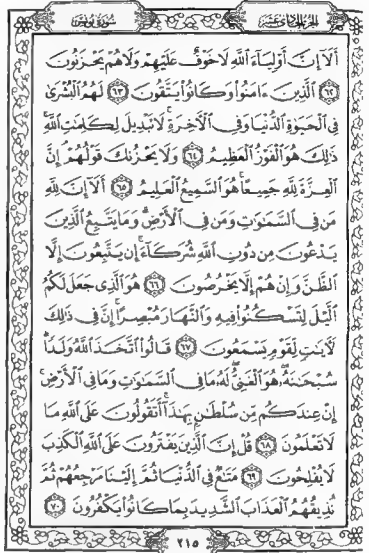 سُورَةُ يُونُسَ
أَلَآ إِنَّ أَوْلِيَآءَ ٱللَّهِ لَا خَوْفٌ عَلَيْهِمْ وَلَا هُمْ يَحْزَنُونَ
٦٢ ٱلَّذِينَ ءَامَنُوا۟ وَكَانُوا۟ يَتَّقُونَ ٦٣ لَهُمُ ٱلْبُشْرَىٰ
فِى ٱلْحَيَوٰةِ ٱلدُّنْيَا وَفِى ٱلْءَاخِرَةِ ۚ لَا تَبْدِيلَ لِكَلِمَٰتِ ٱللَّهِ ۚ
ذَٰلِكَ هُوَ ٱلْفَوْزُ ٱلْعَظِيمُ ٦٤ وَلَا يَحْزُنكَ قَوْلُهُمْ ۘ إِنَّ
ٱلْعِزَّةَ لِلَّهِ جَمِيعًا ۚ هُوَ ٱلسَّمِيعُ ٱلْعَلِيمُ ٦٥ أَلَآ إِنَّ لِلَّهِ
مَن فِى ٱلسَّمَٰوَٰتِ وَمَن فِى ٱلْأَرْضِ ۗ وَمَا يَتَّبِعُ ٱلَّذِينَ
يَدْعُونَ مِن دُونِ ٱللَّهِ شُرَكَآءَ ۚ إِن يَتَّبِعُونَ إِلَّا
ٱلظَّنَّ وَإِنْ هُمْ إِلَّا يَخْرُصُونَ ٦٦ هُوَ ٱلَّذِى جَعَلَ لَكُمُ
ٱلَّيْلَ لِتَسْكُنُوا۟ فِيهِ وَٱلنَّهَارَ مُبْصِرًا ۚ إِنَّ فِى ذَٰلِكَ
لَءَايَٰتٍ لِّقَوْمٍ يَسْمَعُونَ ٦٧ قَالُوا۟ ٱتَّخَذَ ٱللَّهُ وَلَدًا ۗ
سُبْحَٰنَهُۥ ۖ هُوَ ٱلْغَنِىُّ ۖ لَهُۥ مَا فِى ٱلسَّمَٰوَٰتِ وَمَا فِى ٱلْأَرْضِ ۚ
إِنْ عِندَكُم مِّن سُلْطَٰنٍۭ بِهَٰذَآ ۚ أَتَقُولُونَ عَلَى ٱللَّهِ مَا
لَا تَعْلَمُونَ ٦٨ قُلْ إِنَّ ٱلَّذِينَ يَفْتَرُونَ عَلَى ٱللَّهِ ٱلْكَذِبَ
لَا يُفْلِحُونَ ٦٩ مَتَٰعٌ فِى ٱلدُّنْيَا ثُمَّ إِلَيْنَا مَرْجِعُهُمْ ثُمَّ
نُذِيقُهُمُ ٱلْعَذَابَ ٱلشَّدِيدَ بِمَا كَانُوا۟ يَكْفُرُونَ ٧٠
٢١٥